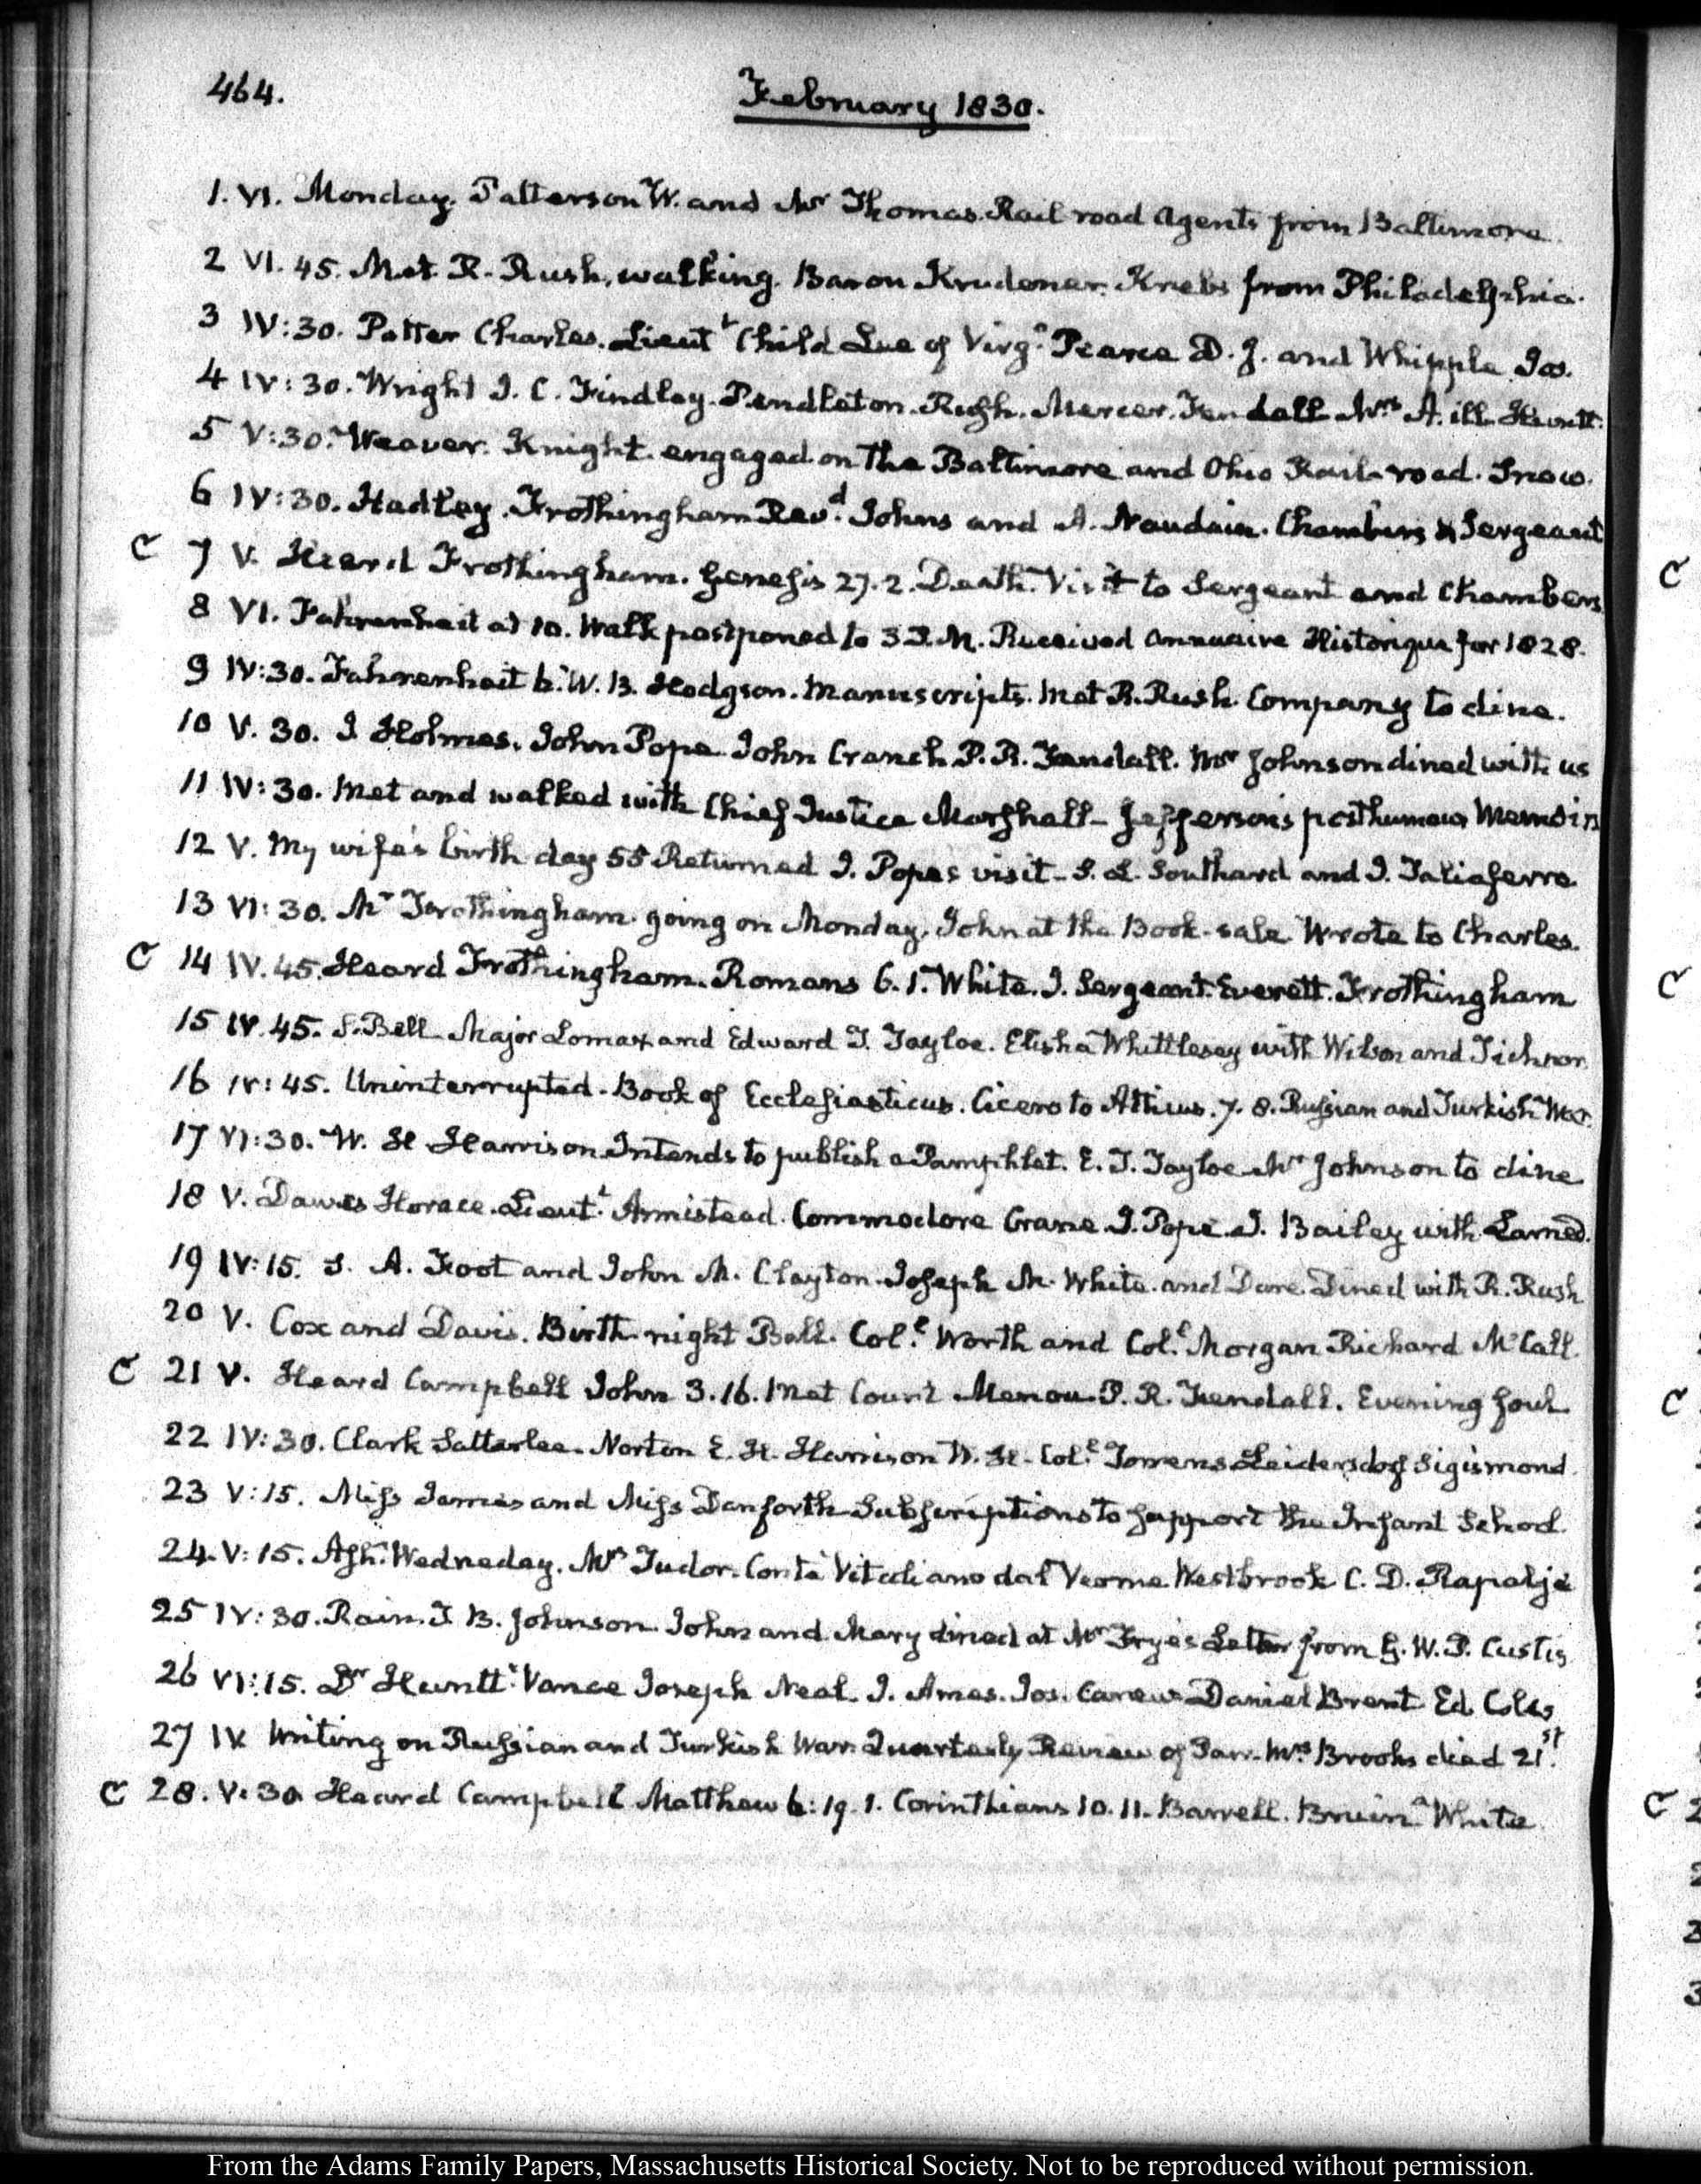 464.
February 1830.
1. VI. Monday. Patterson W. and Mr Thomas. Rail road Agents from Baltimore.
2 VI. 45. Met R. Rush, walking. Baron Krudener. Krebs from Philadelphia.
3 IV:30. Potter Charles. Lieutt Child Lee of Virga Pearce D. J. and Whipple Jos.
4 IV:30. Wright J. C. Findlay. Pendleton. Rush. Mercer. Fendall Mrs A. ill. Huntt.
5 V:30. Weaver. Knight. engaged on the Baltimore and Ohio Rail-road. Snow.
6 IV:30. Hadley. Frothingham Revd. Johns and A. Naudain. Chambers & Sergeant
C 7 V. Heard Frothingham. Genesis 27.2. Death. Visit to Sergeant and Chambers.
8 VI. Fahrenheit at 10. Walk postponed to 3 P.M. Received Annuaire Historique for 1828.
9 IV:30. Fahrenheit 6. W. B. Hodgson. Manuscripts. Met R. Rush. Company to dine.
10 V. 30. J Holmes. John Pope. John Cranch. P. R. Fendall. Mr Johnson dined with us
11 IV:30. Met and walked with Chief Justice Marshall – Jefferson's posthumous Memoirs
12 V. My wife's birth day 55 Returned J. Pope's visit – S. L. Southard and J. Taliaferro.
13 VI:30. Mr Frothingham going on Monday. John at the Book-sale Wrote to Charles.
C 14 IV. 45. Heard Frothingham. Romans 6.1. White. J. Sergeant. Everett. Frothingham
15 IV. 45. S. Bell Major Lomax and Edward T. Tayloe. Elisha Whittlesey with Wilson and Tichnor.
16 IV:45. Uninterrupted. Book of Ecclesiasticus. Cicero to Atticus. 7. 8. Russian and Turkish War.
17 VI:30. W. H Harrison Intends to publish a Pamphlet. E. T. Tayloe Mr Johnson to dine
18 V. Dawes Horace. Lieutt. Armistead. Commodore Crane J. Pope J. Bailey with Larned.
19 IV:15. S. A. Foot and John M. Clayton. Joseph M. White. and Dare. Dined with R. Rush
20 V. Cox and Davis. Birth-night Ball. Coll. Worth and Coll. Morgan Richard McCall.
C 21 V. Heard Campbell John 3.16. Met Count Menou. P. R. Fendall. Evening foul
22 IV:30. Clark Satterlee. Norton E. H. Harrison W. H. Coll. Towens Leidersdorf Sigismond.
23 V:15. Miss James and Miss Danforth Subscriptions to support the Infant School.
24. V:15. Ash-Wedneday. Mrs Tudor. Conte Vitaliano dal Verme. Westbrook C. D. Rapalje
25 IV:30. Rain. T. B. Johnson. John and Mary dined at Mr Frye's Letter from G. W. P. Custis
26 VI:15. Dr Huntt. Vance Joseph Neal. J. Ames. Jos. Carew Daniel Brent Ed. Coles
27 IV Writing on Russian and Turkish War. Quarterly Review of Parr. Mrs Brooks died 21st.
C 28. V:30 Heard Campbell Matthew 6:19. 1. Corinthians 10.11. Barrell. Bruin White.
From the Adams Family Papers, Massachusetts Historical Society. Not to be reproduced without permission.